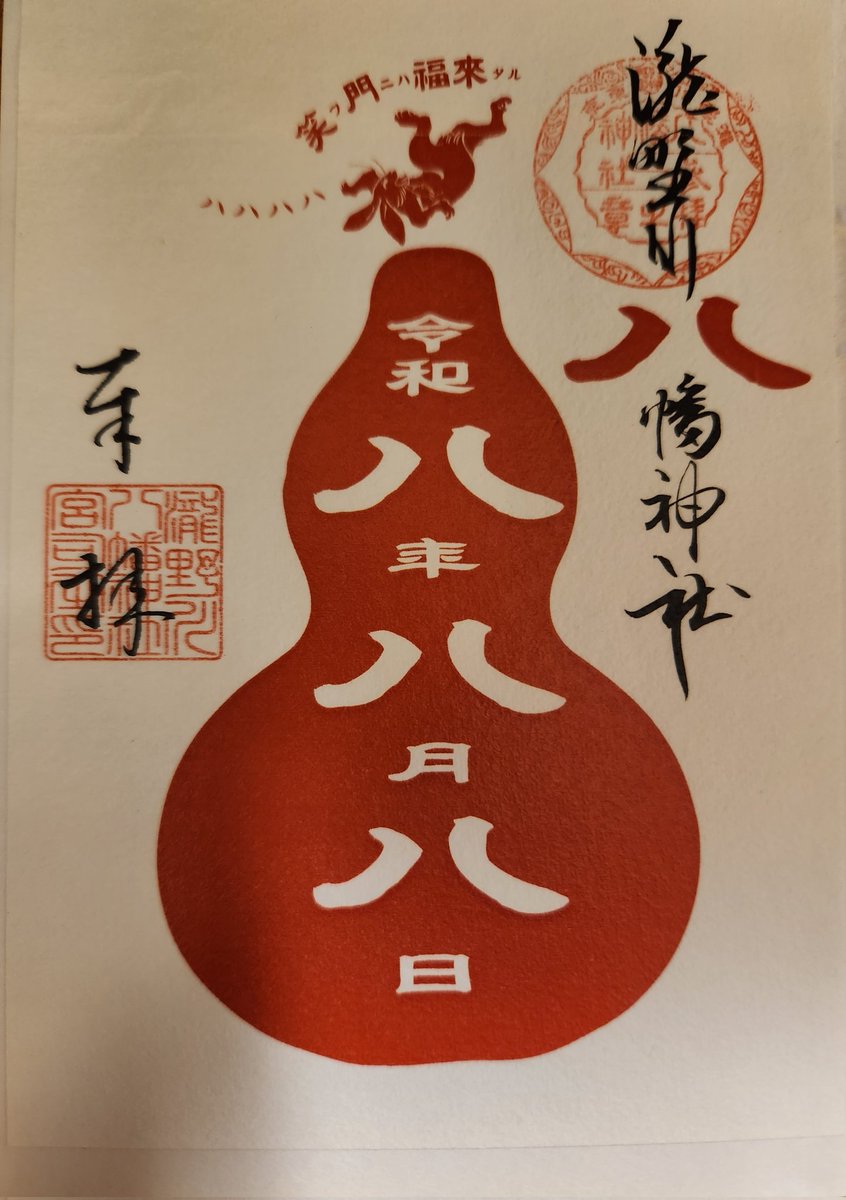 笑フ門ニハ福來タル
ハハハハ
瀧野川八幡神社
令和
八
年
八
月
八
日
奉拝
瀧野川
八幡社
宮司之印